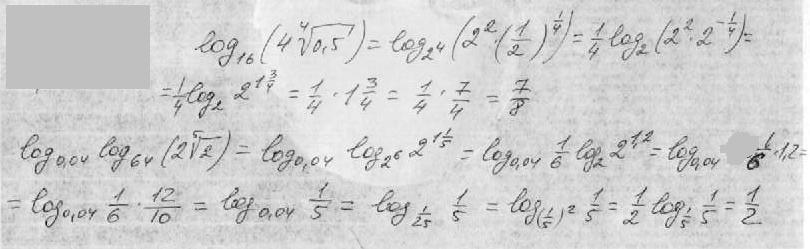 log₁₆(4⁴√0,5) = log₂⁴(2²·(1/2)^(1/4)) = 1/4 log₂(2²·2^(-1/4)) =
= 1/4 log₂ 2^(1 3/4) = 1/4 · 1 3/4 = 1/4 · 7/4 = 7/8
log₀,₀₄ log₆₄(2⁵√2) = log₀,₀₄ log₂⁶ 2^(1 1/5) = log₀,₀₄ 1/6 log₂ 2^(1,2) = log₀,₀₄ 1/6 · 1,2 =
= log₀,₀₄ 1/6 · 12/10 = log₀,₀₄ 1/5 = log_(1/25) 1/5 = log_((1/5)²) 1/5 = 1/2 log_(1/5) 1/5 = 1/2